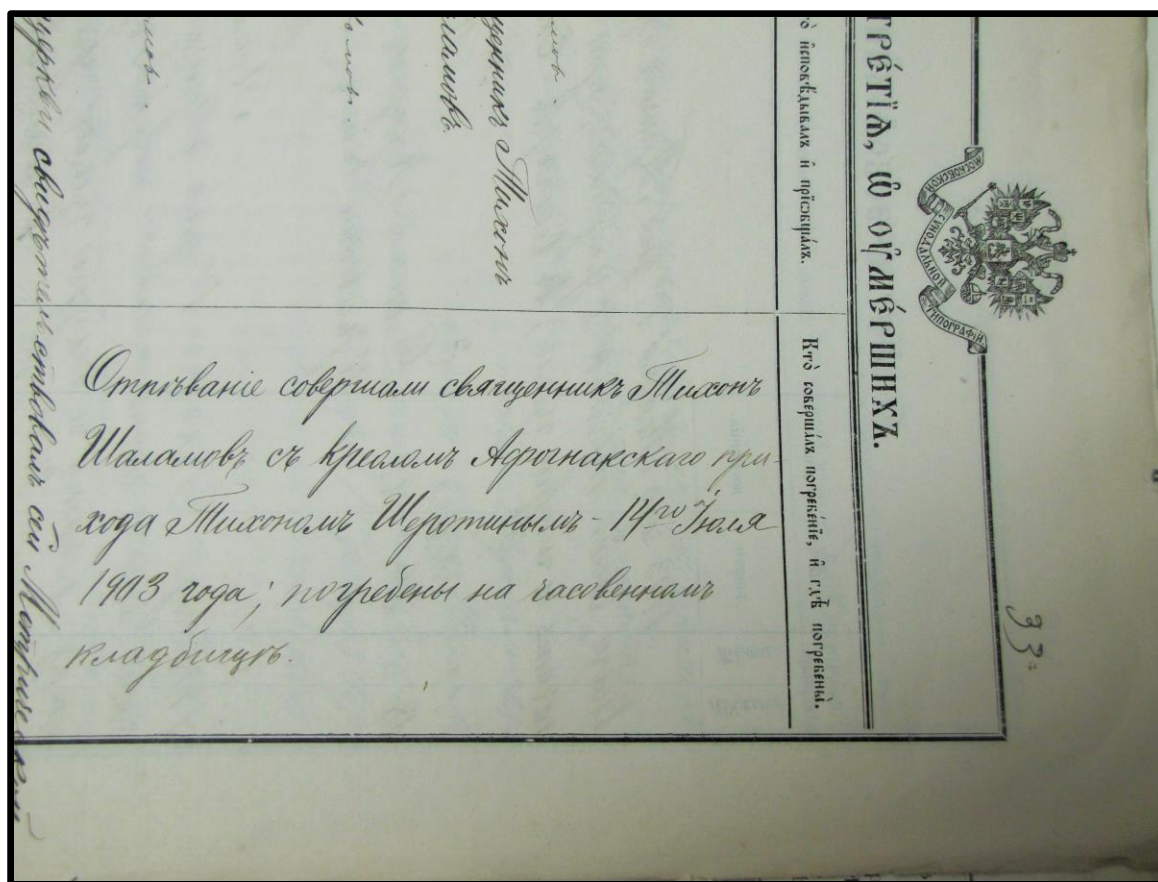 МОСКОВСКОЙ СѴНОДАЛЬНОЙ ТИПОГРАФІИ
33
ТРЕ́ТІѦ, Ѡ ОУ҆МЕ́РШИХЪ.
и҆сповѣ́дывалъ и҆ прїѡбща́лъ.
Кто̀ соверша́лъ погребе́нїе, и҆ гдѣ̀ погребены̀.
священникъ Тихонъ
Шаламовъ
Отпѣваніе совершали священникъ Тихонъ
Шаламовъ съ креоломъ Афогнакскаго при-
хода Тихономъ Шеротинымъ - 14го Іюля
1903 года; погребены на часовенномъ
кладбищѣ.
церкви свидѣтельствовалъ сей Метрической